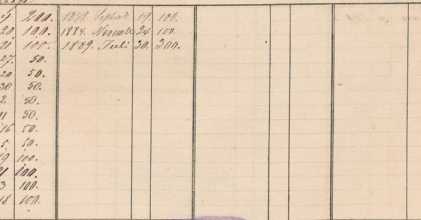 200. Septemb. 19. 100.
20. 100. 1884. Novemb. 24. 100.
21 100. 1889. Juli 30. 300.
27. 50.
20 50.
30. 50.
2. 50.
11 50.
16 50.
5. 50.
19 100.
21 100.
3 100.
18 100.